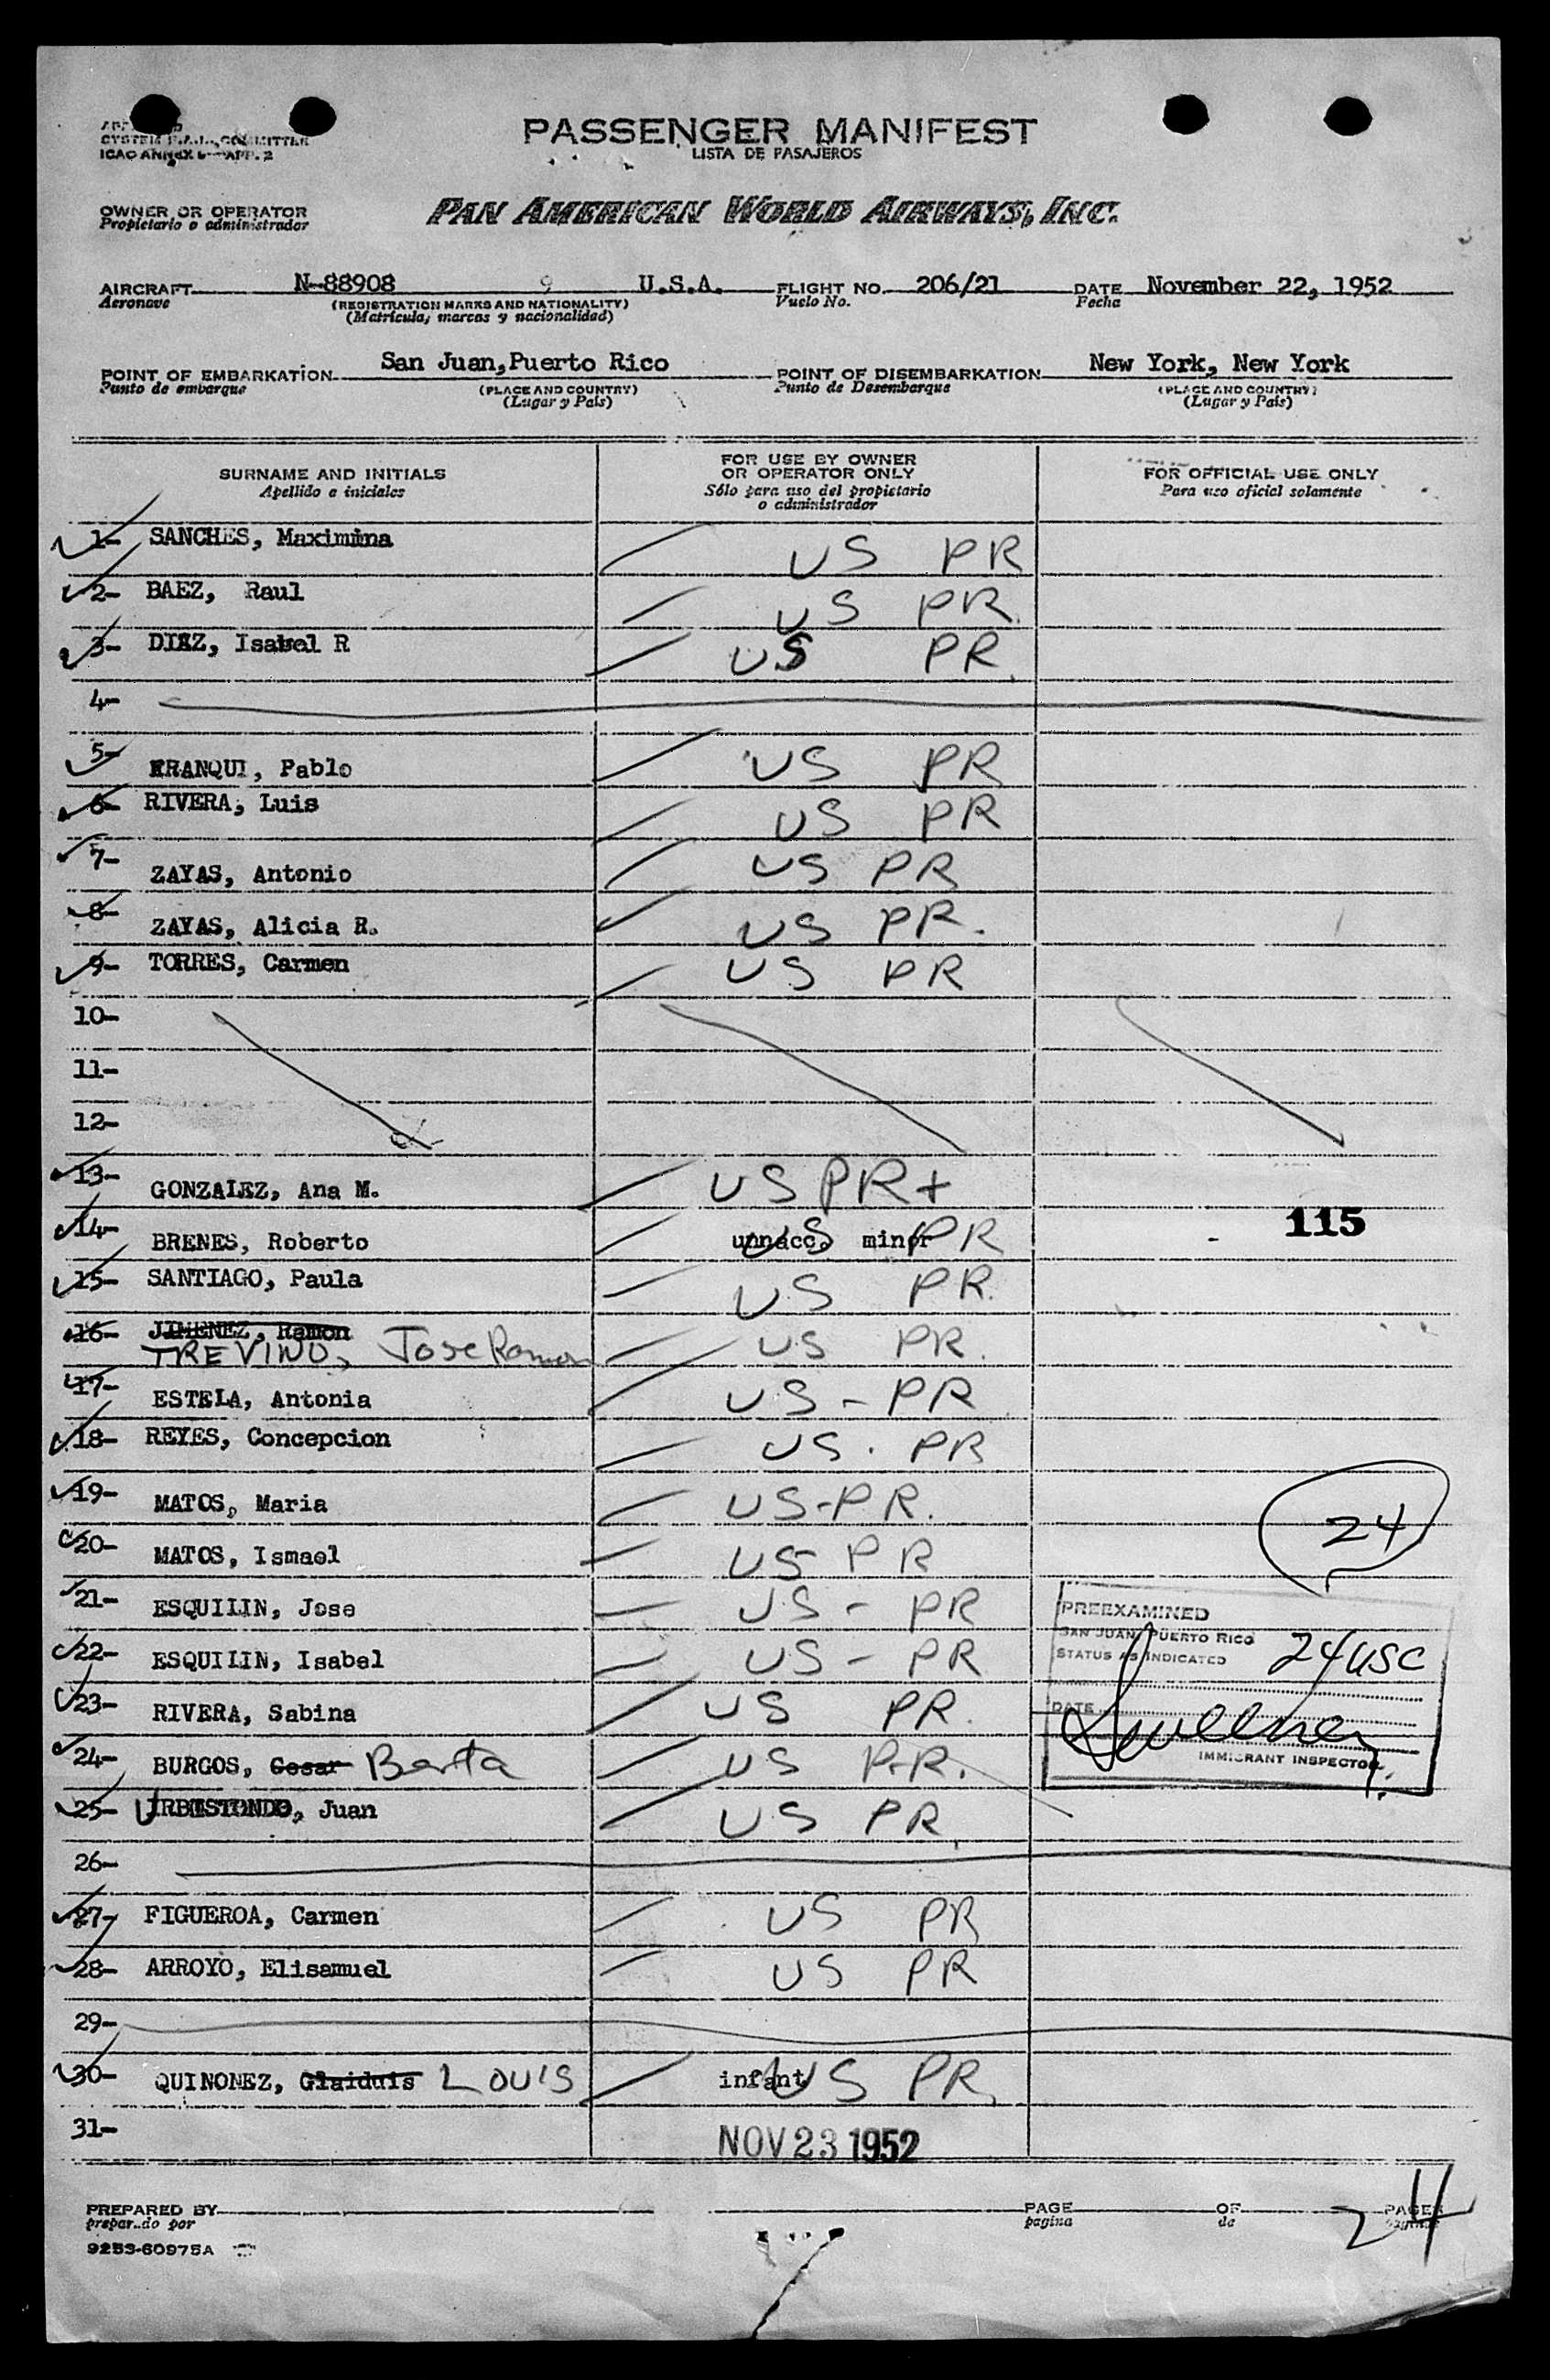 ICAO ANNEX 9 APP. 2
PASSENGER MANIFEST
LISTA DE PASAJEROS
OWNER OR OPERATOR
Propietario o administrador
PAN AMERICAN WORLD AIRWAYS, INC.
AIRCRAFT N-88908 9 U.S.A. FLIGHT NO. 206/21 DATE November 22, 1952
Aeronave (REGISTRATION MARKS AND NATIONALITY) Vuelo No. Fecha
(Matricula, marcas y nacionalidad)
POINT OF EMBARKATION San Juan, Puerto Rico POINT OF DISEMBARKATION New York, New York
Punto de embarque (PLACE AND COUNTRY) Punto de Desembarque (PLACE AND COUNTRY)
(Lugar y Pais) (Lugar y Pais)
SURNAME AND INITIALS
Apellido e iniciales
FOR USE BY OWNER
OR OPERATOR ONLY
Sólo para uso del propietario
o administrador
FOR OFFICIAL USE ONLY
Para uso oficial solamente
1- SANCHES, Maximina US PR
2- BAEZ, Raul US PR
3- DIAZ, Isabel R US PR
4-
5- FRANQUI, Pablo US PR
6- RIVERA, Luis US PR
7- ZAYAS, Antonio US PR
8- ZAYAS, Alicia R. US PR.
9- TORRES, Carmen US PR
10-
11-
12-
13- GONZALEZ, Ana M. US PR+
115
14- BRENES, Roberto unnacc. minor US PR
15- SANTIAGO, Paula US PR.
16- JIMENEZ, Ramon
TREVINO, Jose Ramon US PR.
17- ESTELA, Antonia US - PR
18- REYES, Concepcion US. PR
19- MATOS, Maria US-PR.
24
20- MATOS, Ismael US PR
21- ESQUILIN, Jose US - PR
22- ESQUILIN, Isabel US - PR
23- RIVERA, Sabina US PR.
24- BURGOS, Cesar Berta US P.R.
25- Juan US PR
26-
27- FIGUEROA, Carmen US PR
28- ARROYO, Elisamuel US PR
29-
30- QUINONEZ, Glaiduis LOUIS infant US PR
31-
PREEXAMINED
SAN JUAN, PUERTO RICO
STATUS AS INDICATED 24USC
DATE
IMMIGRANT INSPECTOR
NOV 23 1952
PREPARED BY PAGE OF PAGES 24
preparado por pagina de
9253-60975A